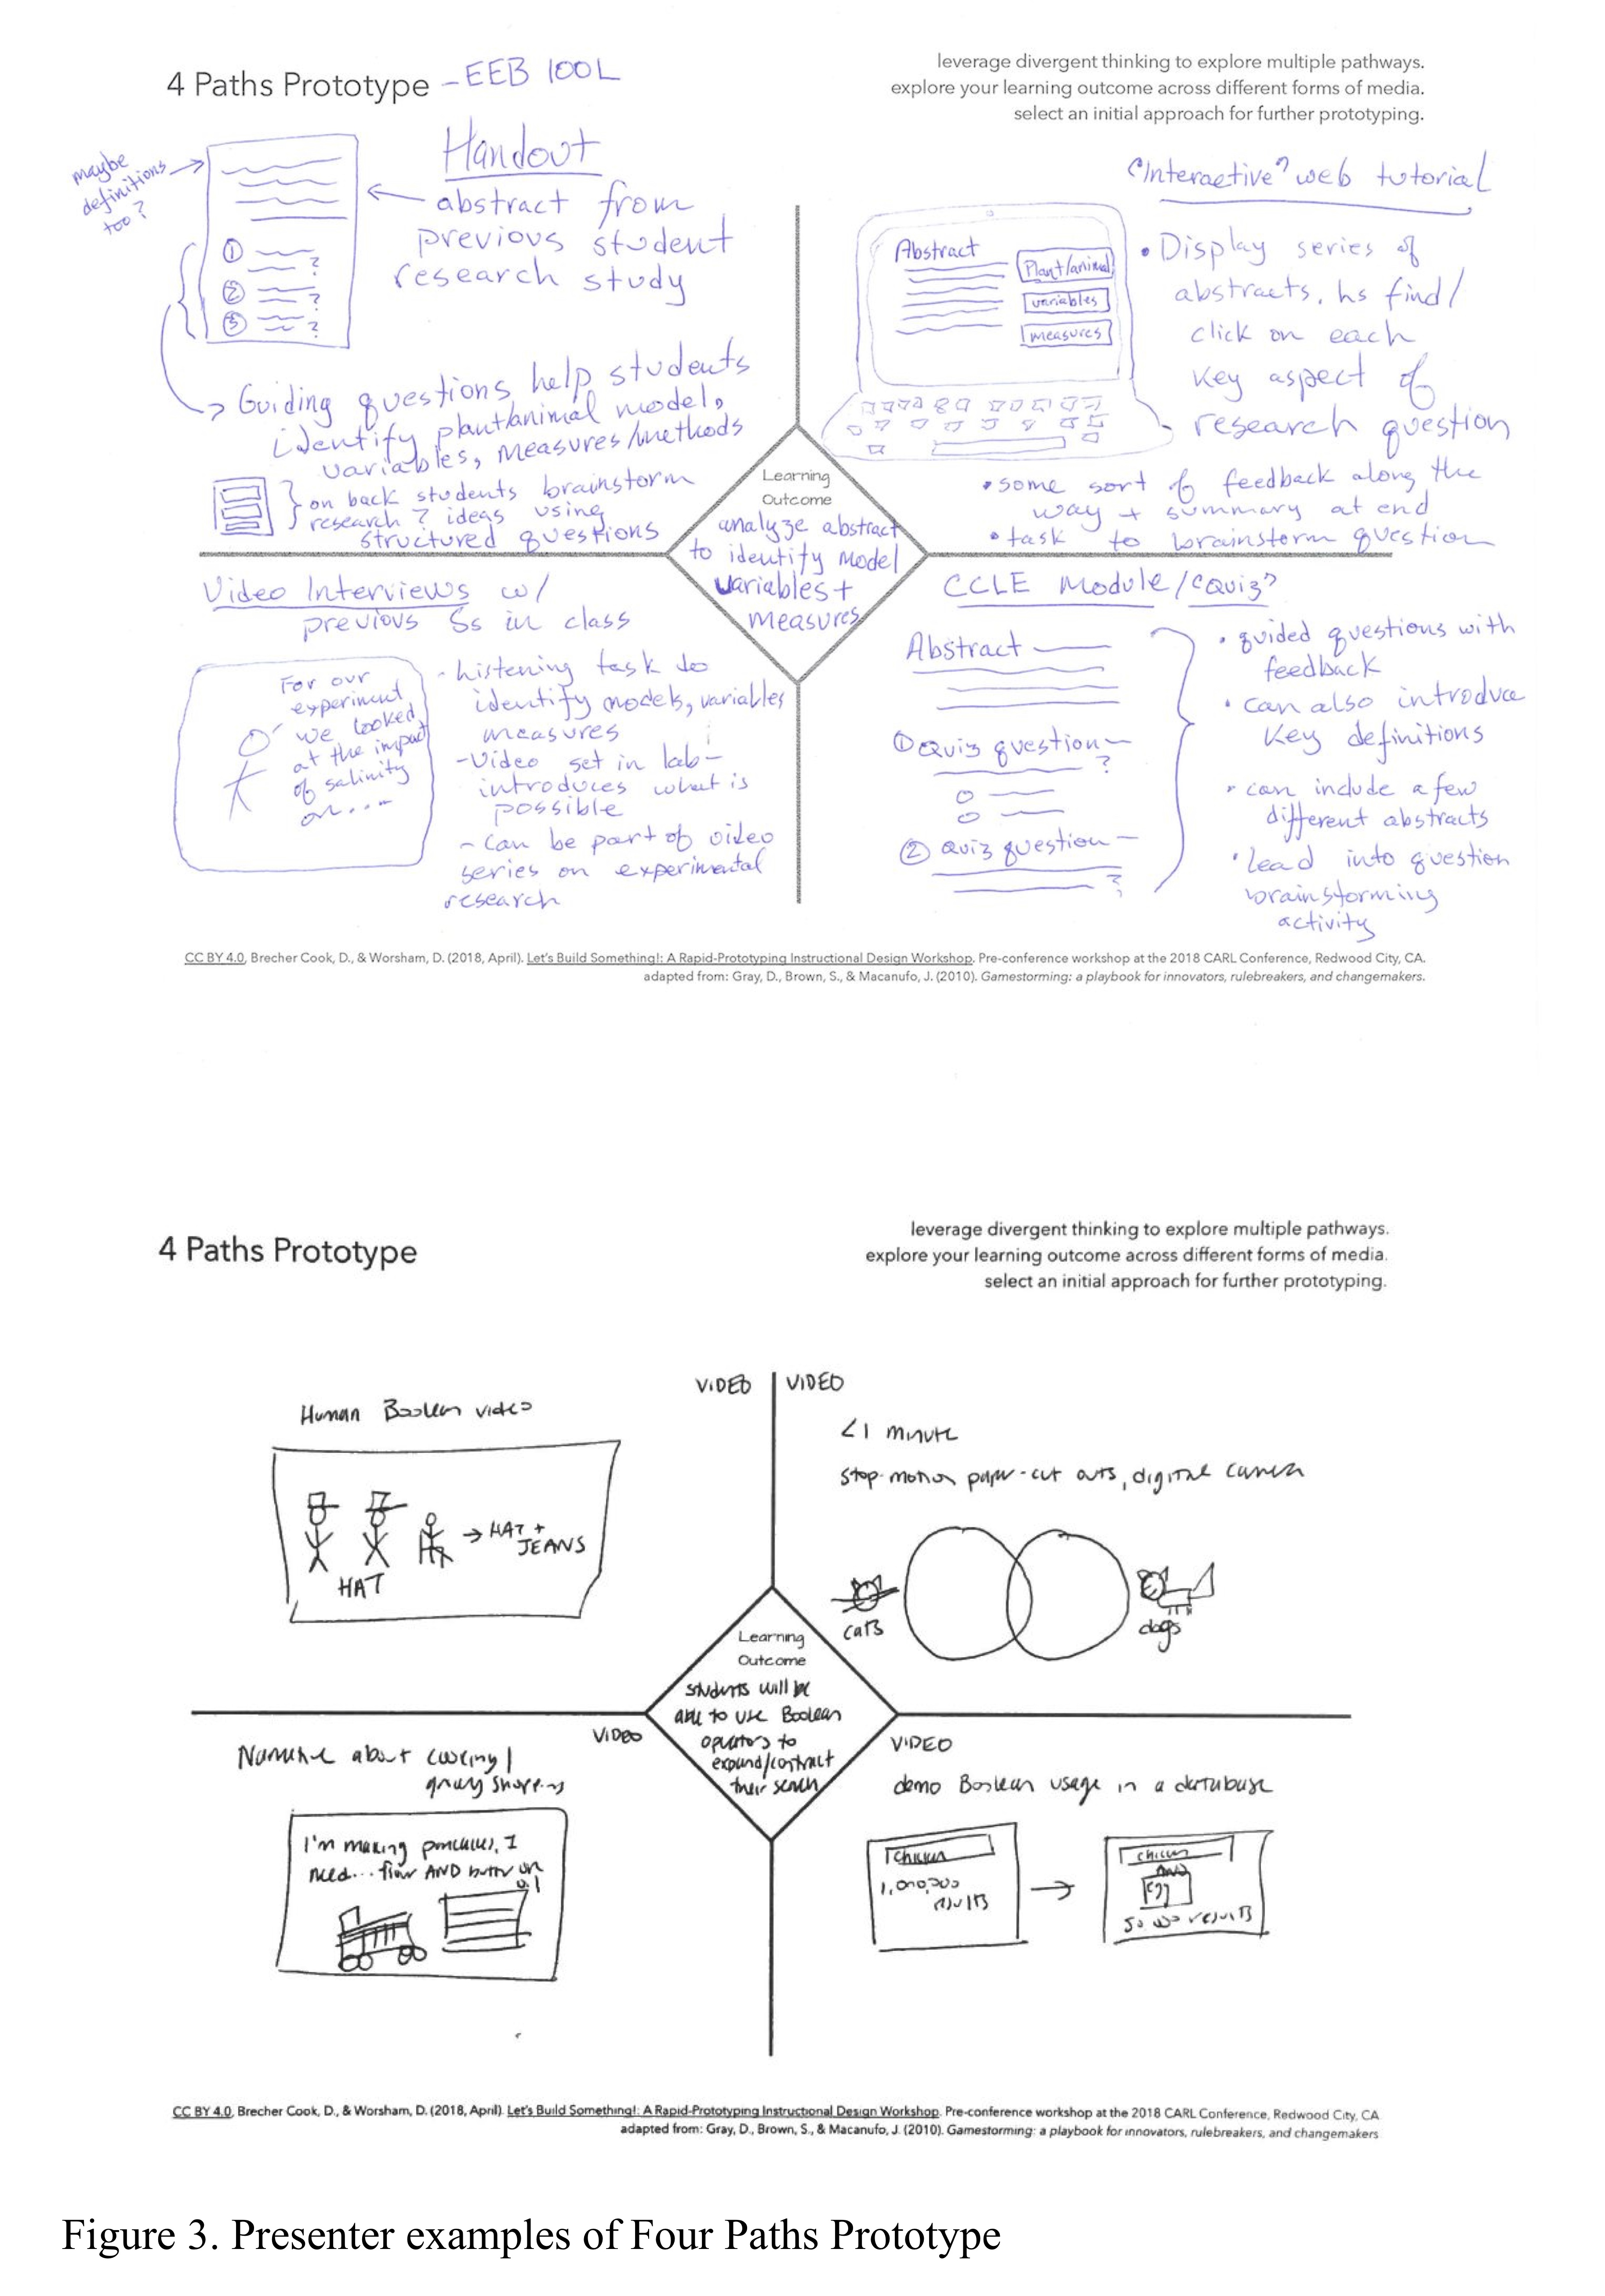 4 Paths Prototype - EEB 100L
leverage divergent thinking to explore multiple pathways.
explore your learning outcome across different forms of media.
select an initial approach for further prototyping.
maybe
definitions
too?
Handout
abstract from
previous student
research study
①
?
②
?
③
?
Guiding questions help students
identify plant/animal model,
variables, measures/methods
on back students brainstorm
research ? ideas using
structured questions
"Interactive" web tutorial
Abstract
Plant/animal
variables
measures
• Display series of
abstracts. hs find/
click on each
key aspect of
research question
• some sort of feedback along the
way + summary at end
• task to brainstorm question
Learning
Outcome
analyze abstract
to identify model
variables +
measures
Video Interviews w/
previous Ss in class
For our
experiment
we looked
at the impact
of salinity
on....
- Listening task to
identify models, variables
measures
- Video set in lab -
introduces what is
possible
- can be part of video
series on experimental
research
CCLE Module/"Quiz"
Abstract
① Quiz question
?
② Quiz question
?
• guided questions with
feedback
• can also introduce
key definitions
• can include a few
different abstracts
• lead into question
brainstorming
activity
CC BY 4.0, Brecher Cook, D., & Worsham, D. (2018, April). Let's Build Something!: A Rapid-Prototyping Instructional Design Workshop. Pre-conference workshop at the 2018 CARL Conference, Redwood City, CA.
adapted from: Gray, D., Brown, S., & Macanufo, J. (2010). Gamestorming: a playbook for innovators, rulebreakers, and changemakers.
4 Paths Prototype
leverage divergent thinking to explore multiple pathways.
explore your learning outcome across different forms of media.
select an initial approach for further prototyping.
VIDEO
Human Boolean video
HAT
→ HAT +
JEANS
VIDEO
<1 minute
stop-motion paper-cut outs, digital camera
cats
dogs
Learning
Outcome
students will be
able to use Boolean
operators to
expand/contract
their search
VIDEO
Narrative about cooking/
grocery shopping
I'm making pancakes, I
need... flour AND butter OR
oil
VIDEO
demo Boolean usage in a database
chicken
1,000,000
results
→
chicken
AND
egg
50,000 results
CC BY 4.0, Brecher Cook, D., & Worsham, D. (2018, April). Let's Build Something!: A Rapid-Prototyping Instructional Design Workshop. Pre-conference workshop at the 2018 CARL Conference, Redwood City, CA
adapted from: Gray, D., Brown, S., & Macanufo, J. (2010). Gamestorming: a playbook for innovators, rulebreakers, and changemakers
Figure 3. Presenter examples of Four Paths Prototype